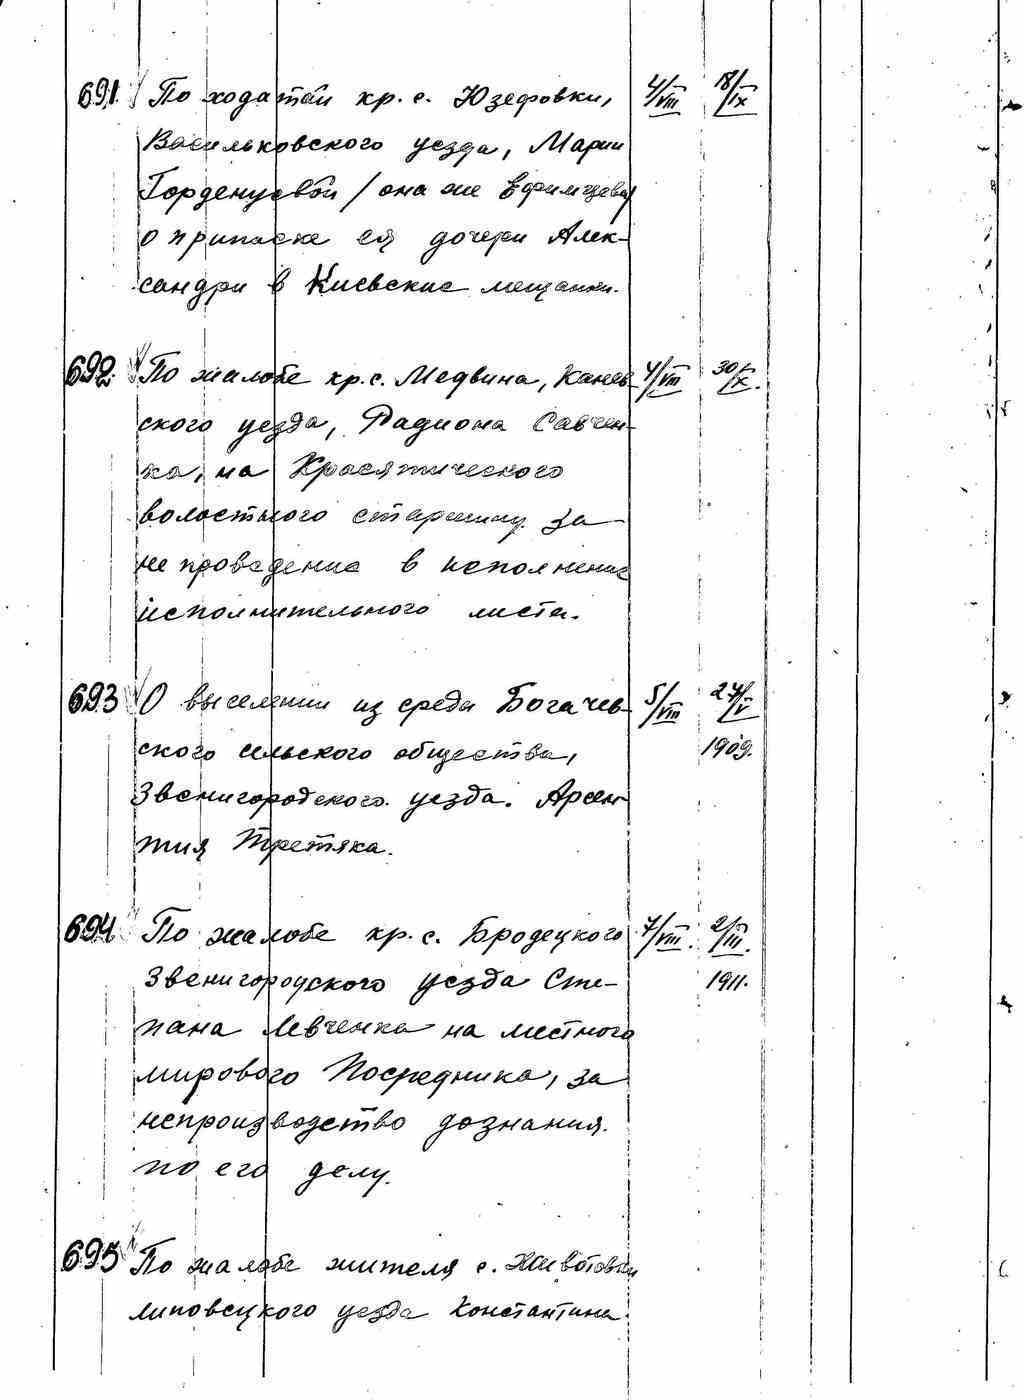 691. По ходатай кр. с. Юзефовки, 4/VIII 18/IX
Васильковского уезда, Марии
Горденусвой /она же Ефимцева/
о приписке ея дочери Алек-
сандри в Киевские мещанки.
692. По жалобе кр. с. Медвина, Канев- 4/VIII 30/X.
ского уезда, Радиона Савчен-
ка, на Красятического
волостного старшину за
не проведение в исполнение
исполнительного листа.
693 О выселении из среды Богачев- 5/VIII 24/V
ского сельского общества, 1909.
Звенигородского уезда. Арсен-
тия Третяка.
694 По жалобе кр. с. Бродецкого 7/VIII. 2/III.
Звенигородского уезда Сте- 1911.
пана Левченка на местного
мирового Посредника, за
непроизводство дознания
по его делу.
695 По жалобе жителя с. Животовки
липовецкого уезда Константина